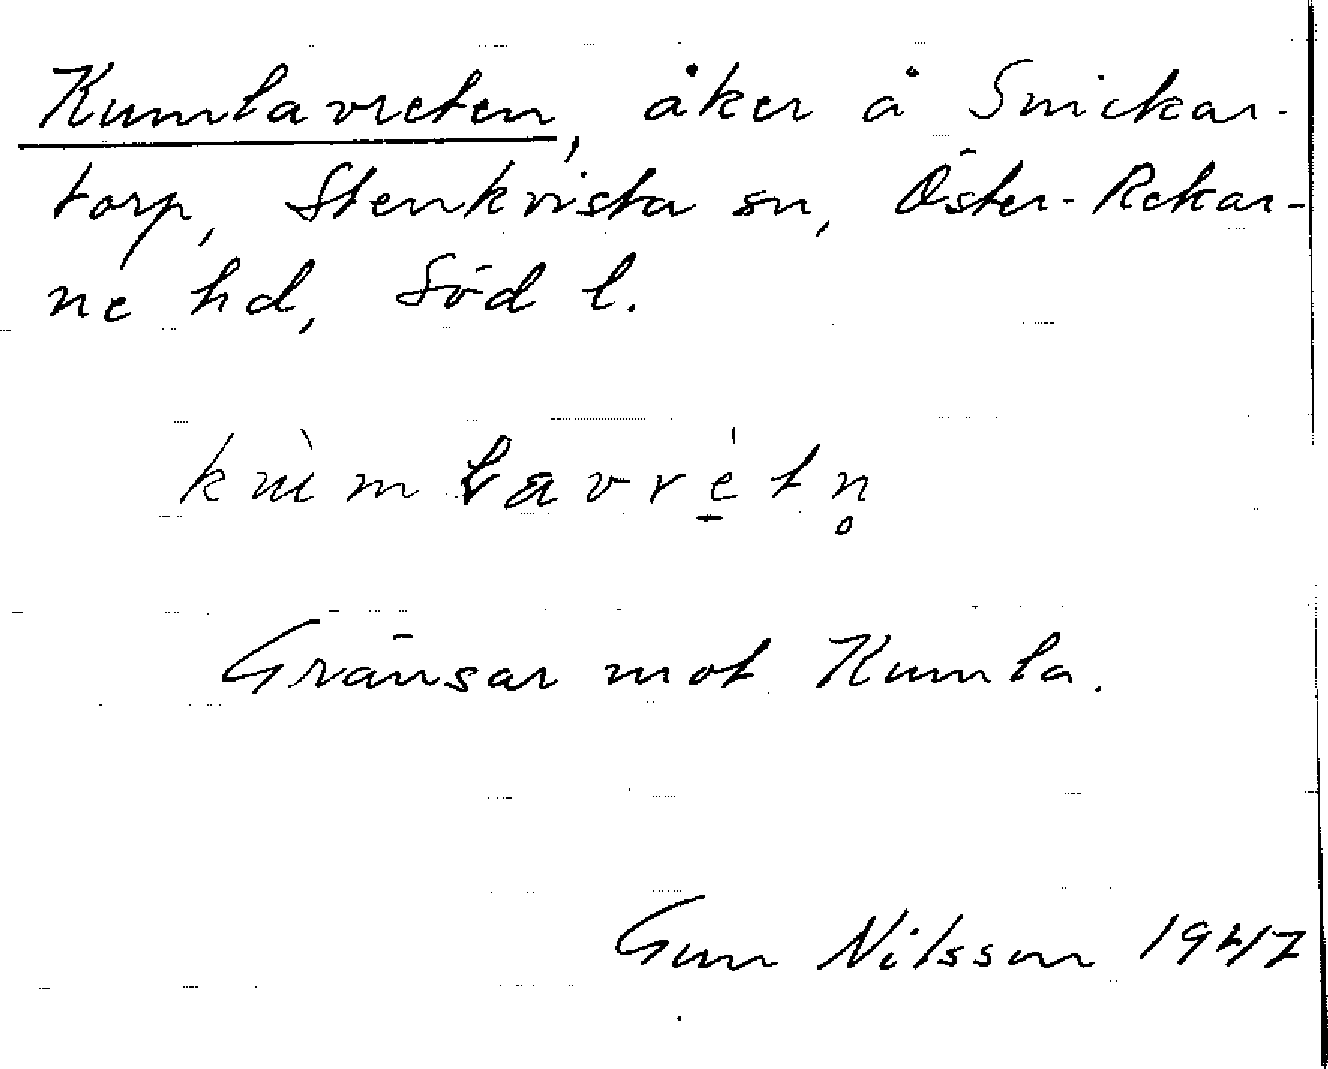 Kumlavreten, åker å Snickar-
torp, Stenkvista sn, Öster-Rekar-
ne hd, Söd l.
kùmlavrétn̥
Gränsar mot Kumla.
Gun Nilsson 1947